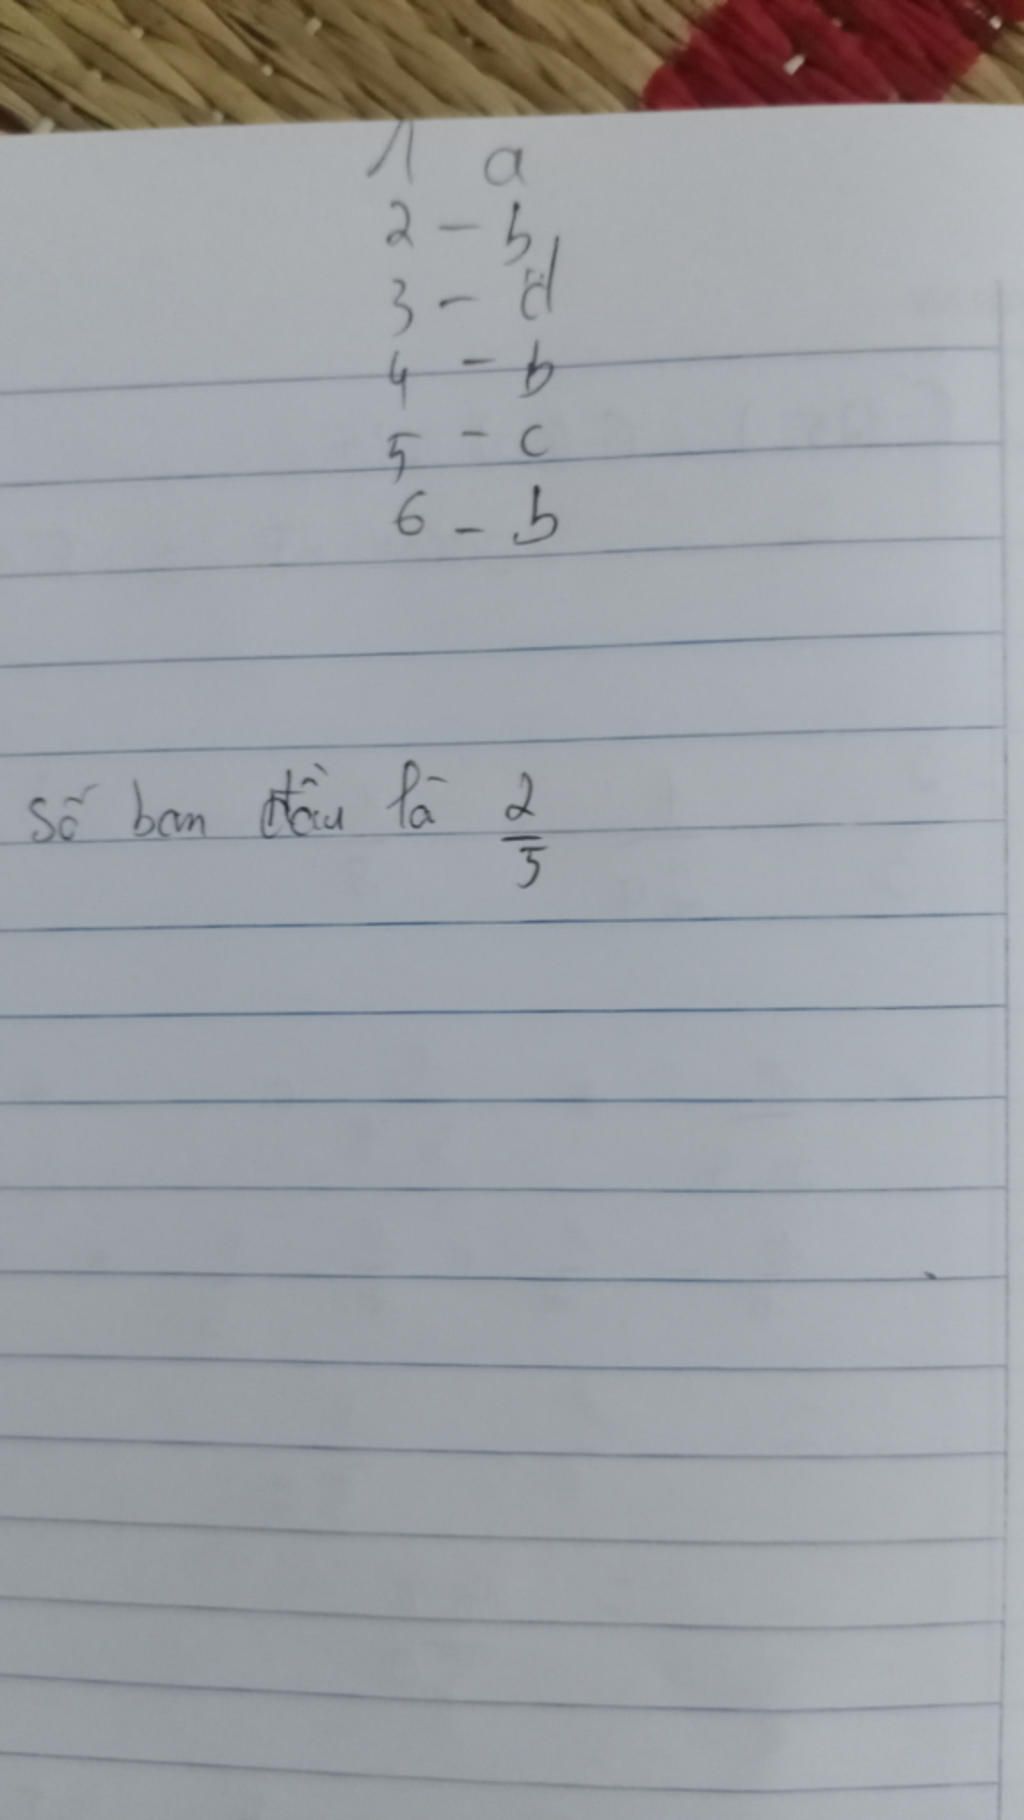 1 a
2 - b
3 - d
4 - b
5 - c
6 - b
Số ban đầu là 2/5